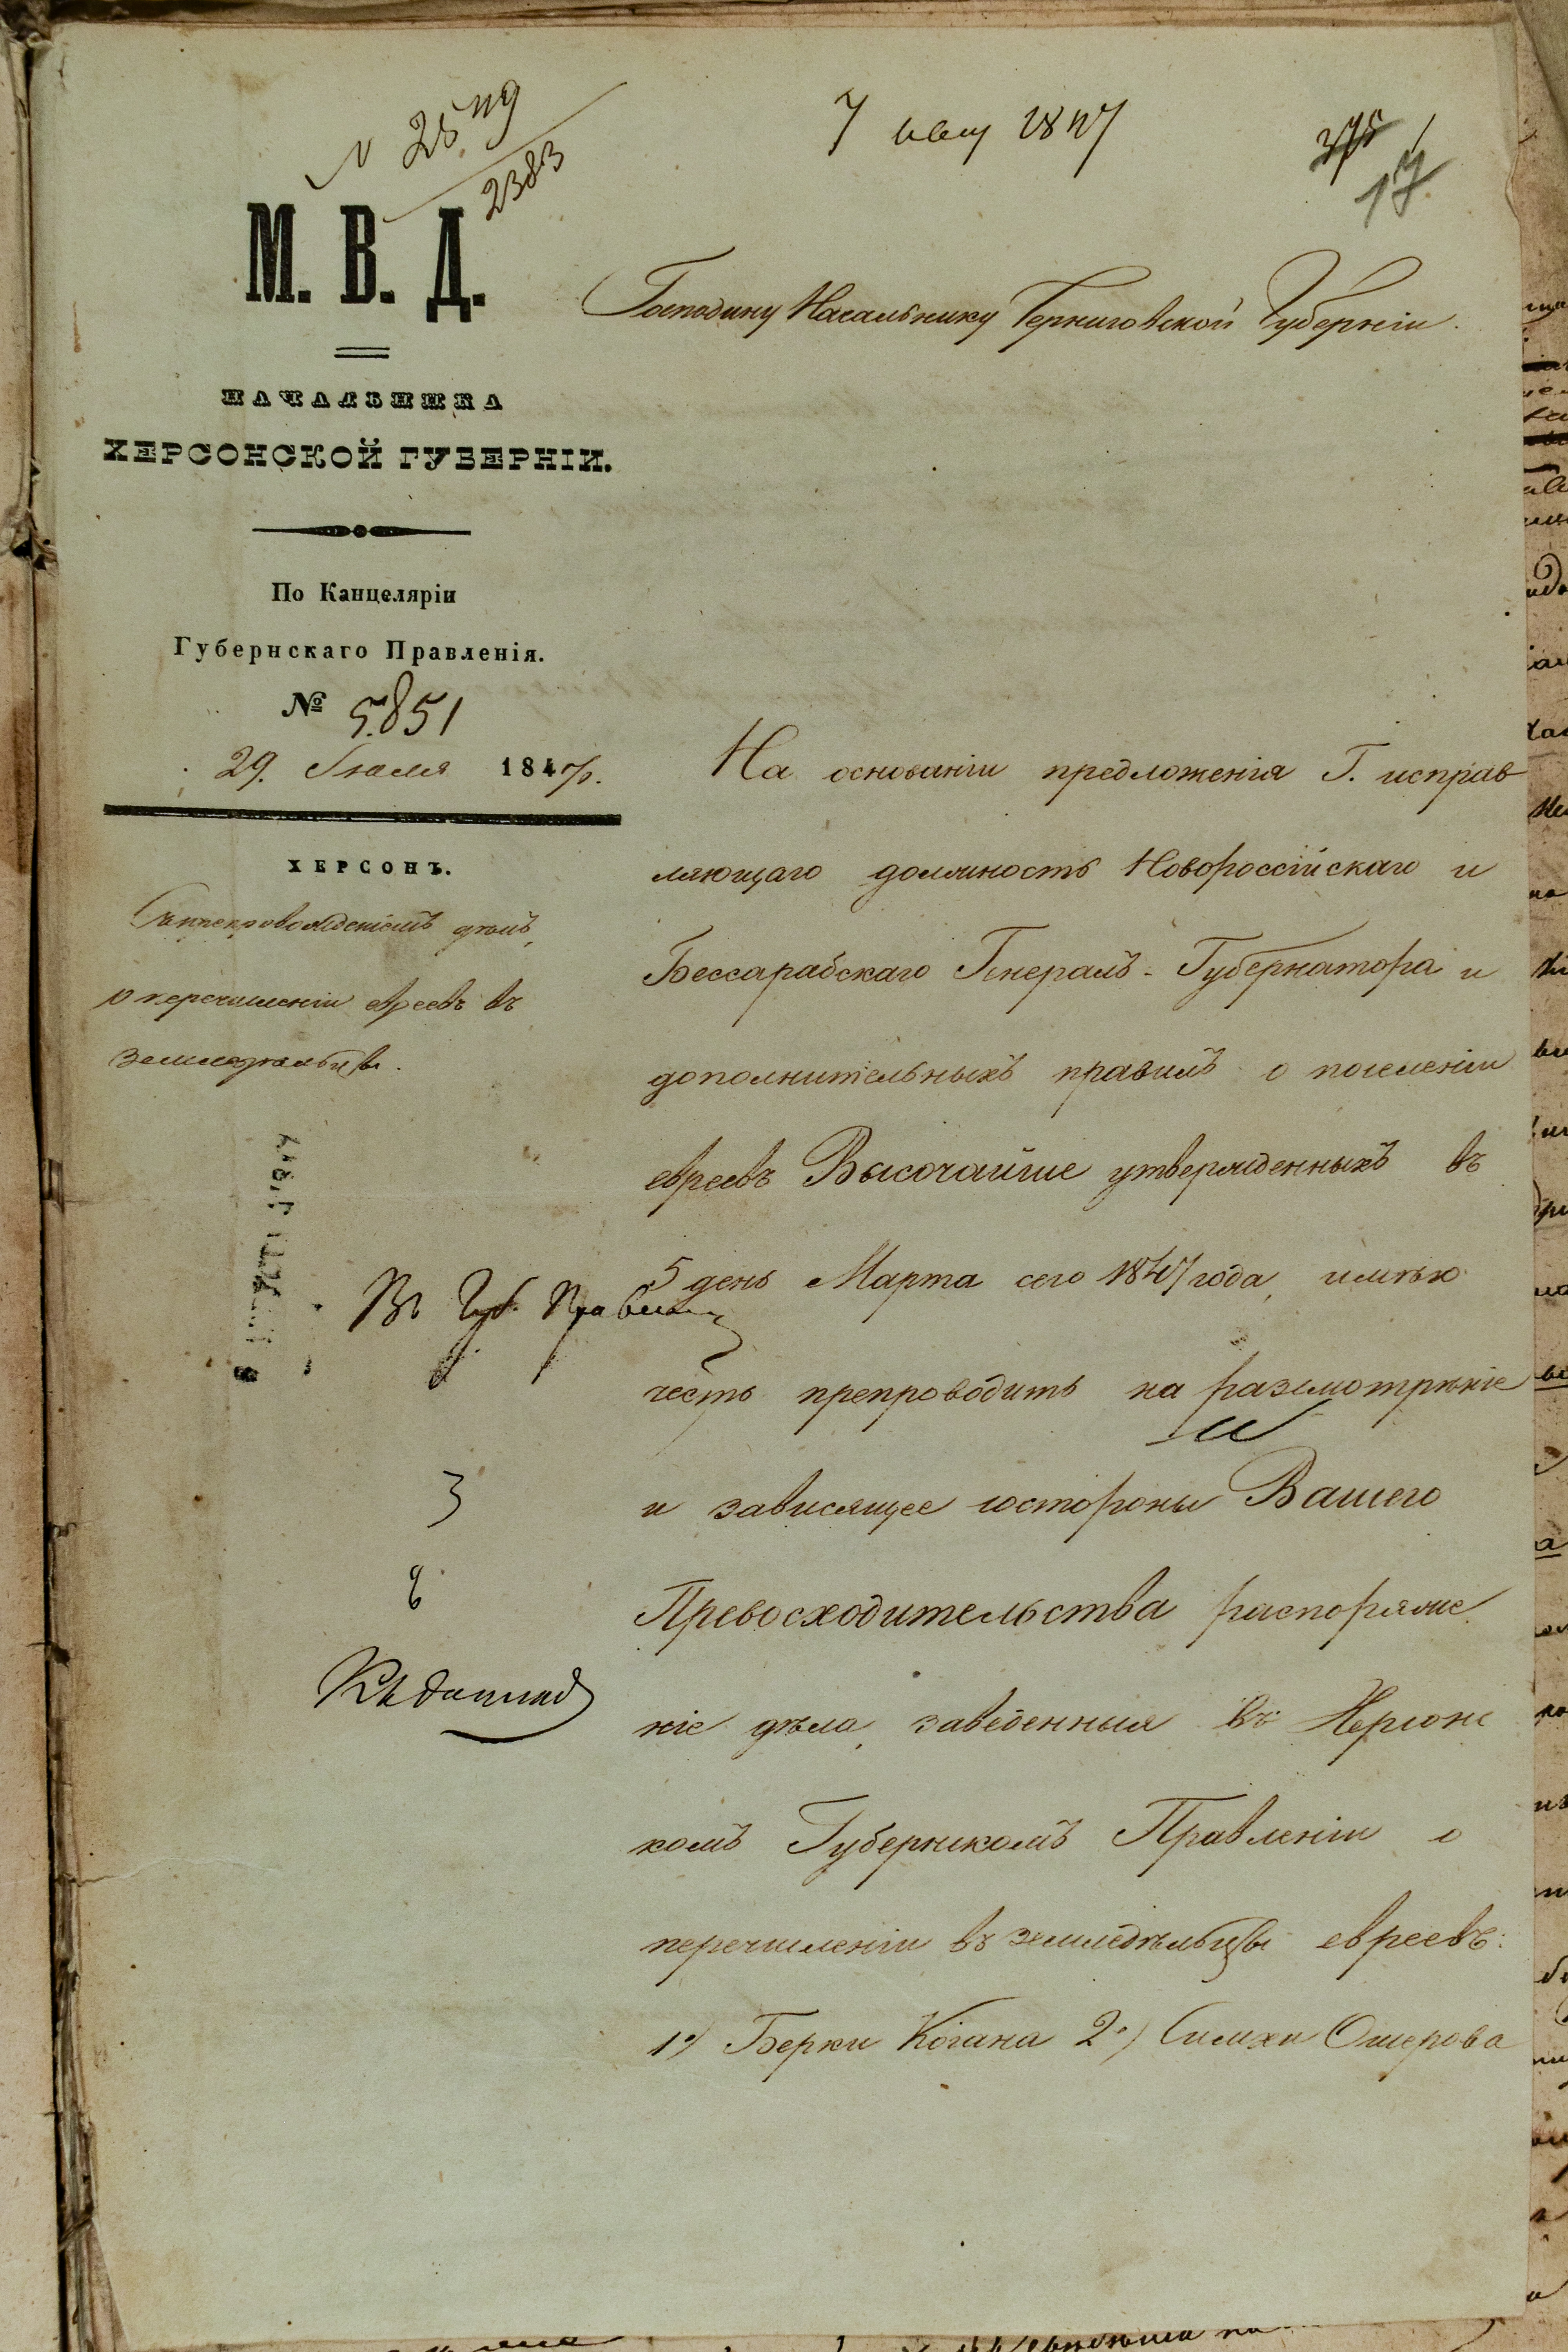 7 авг 1847
2383
17.
М. В. Д.
НАЧАЛЬНИКА
ХЕРСОНСКОЙ ГУБЕРНІИ.
По Канцеляріи
Губернскаго Правленія.
№ 5851
29. Іюля 1847 г.
ХЕРСОНЪ.
Съ препровожденіемъ дѣлъ,
о перечисленіи евреевъ въ
земледѣльцы.
Господину Начальнику Черниговской Губерніи.
На основаніи предложенія Г. исправ
ляющаго должность Новороссійскаго и
Бессарабскаго Генералъ-Губернатора и
дополнительныхъ правилъ о поселеніи
евреевъ Высочайше утвержденныхъ въ
5 день Марта сего 1847 года, имѣю
честь препроводить на разсмотрѣніе
и зависящее состороны Вашего
Превосходительства распоряже
ніе дѣла, заведенныя въ Херсонс
комъ Губернскомъ Правленіи о
перечисленіи въ земледѣльцы евреевъ:
1) Берки Когана 2) Симхи Ошерова
Въ Губ. Правленіе
3
8
Къ докладу